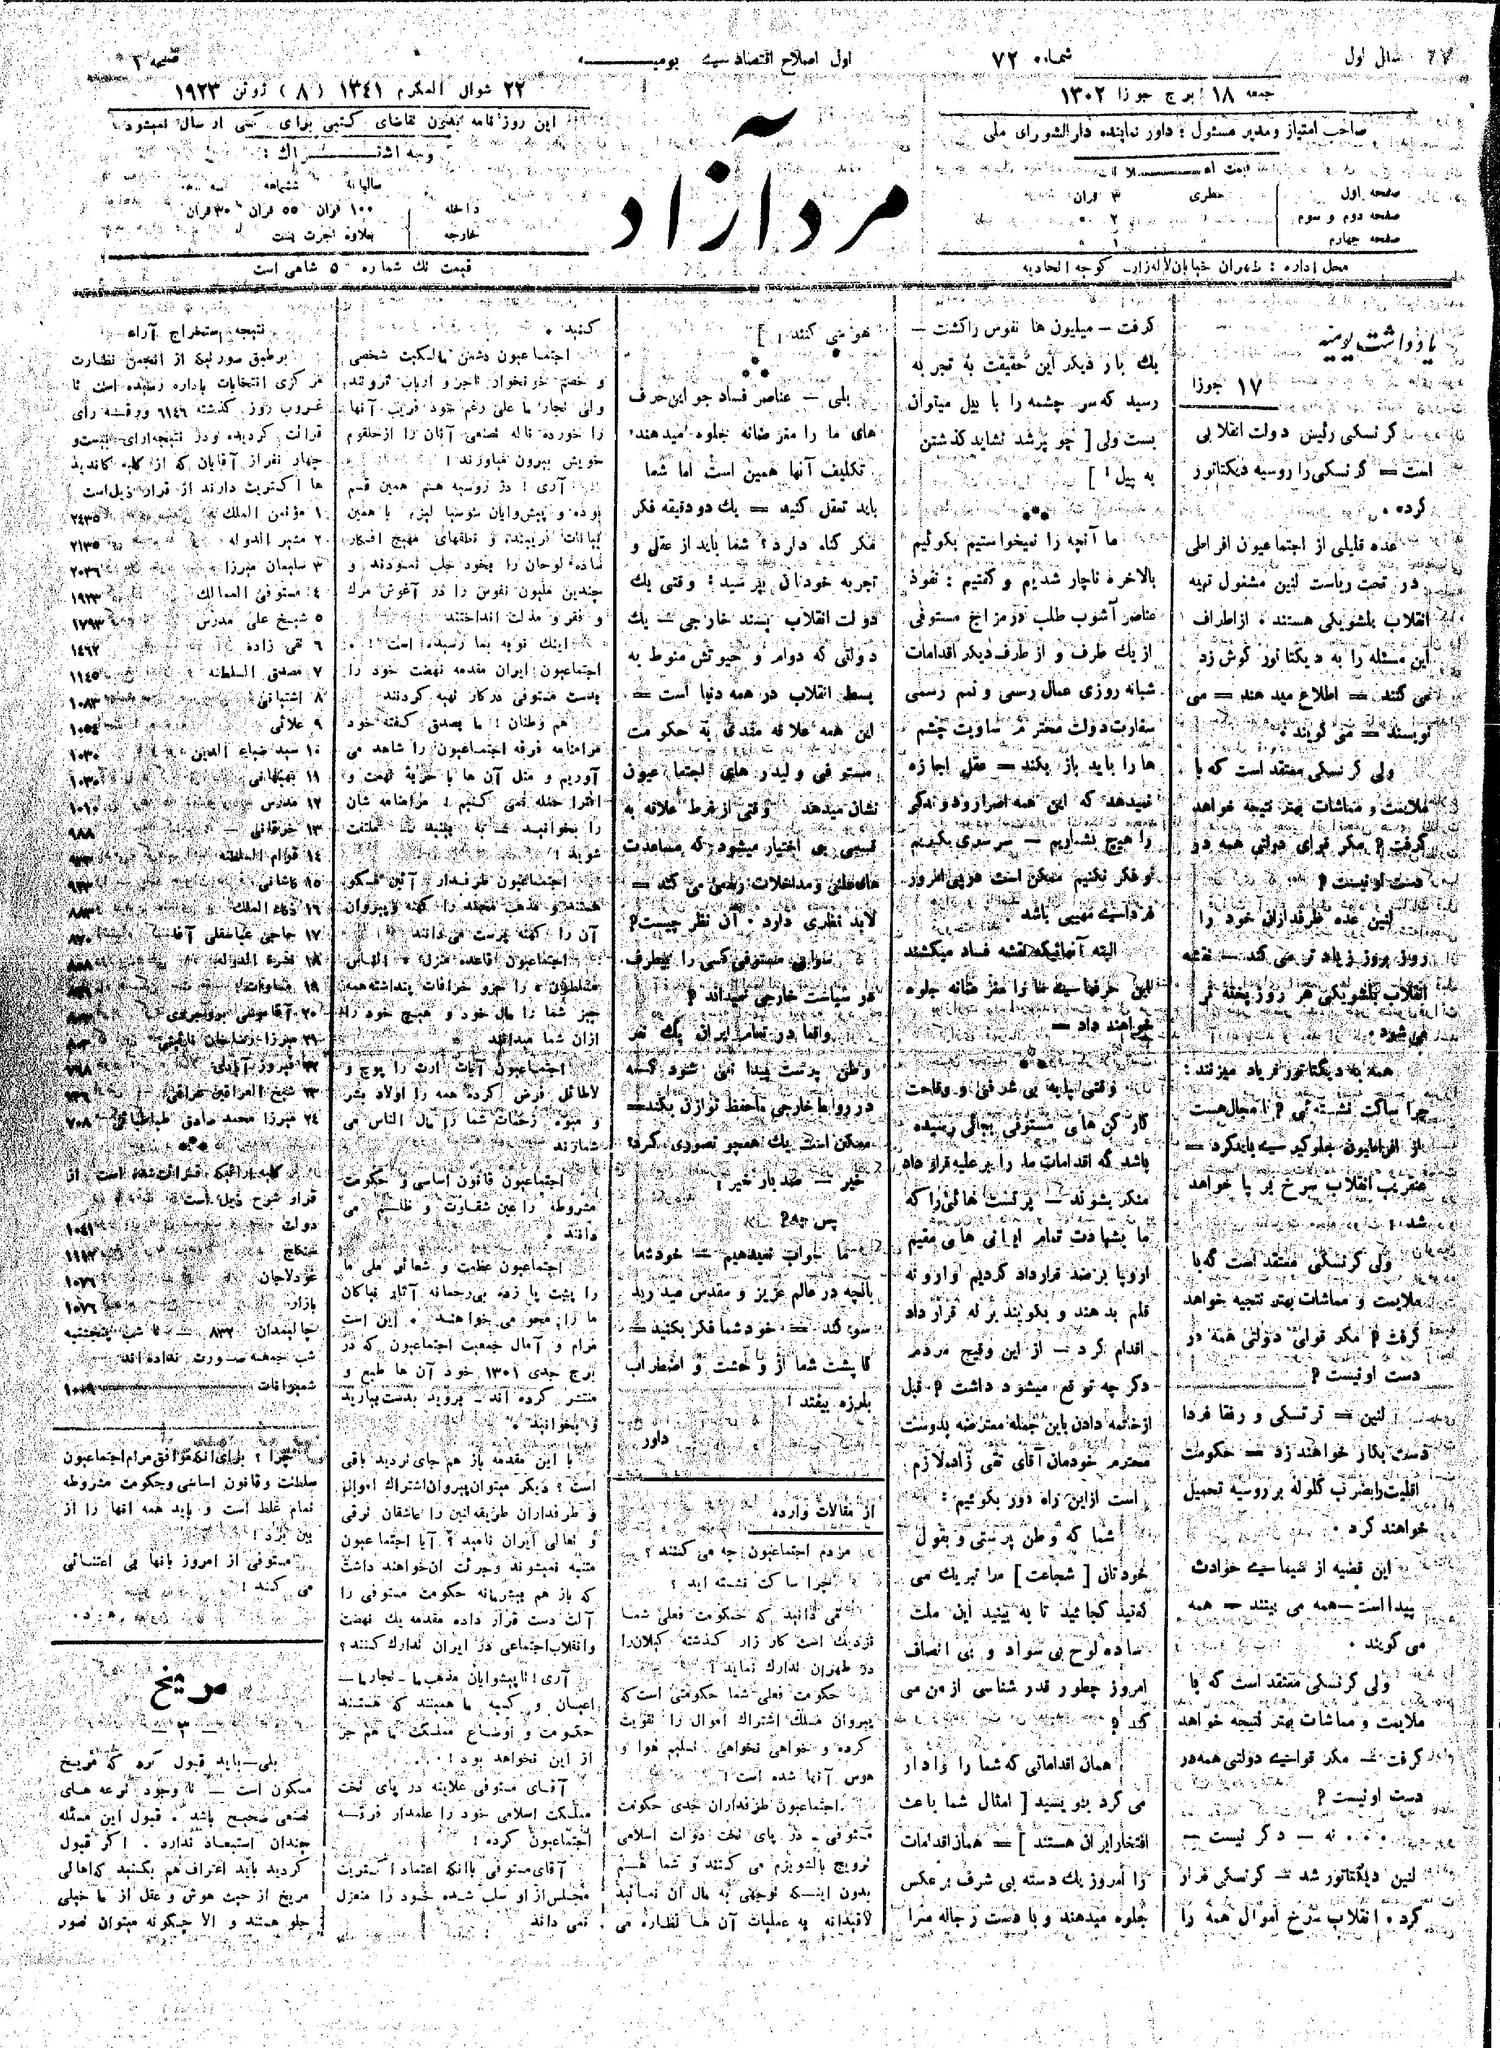 سال اول
شماره ۷۲
اول اصلاح اقتصاد
صفحه
جمعه ۱۸ برج جوزا ۱۳۰۲
۲۲ شوال المکرم ۱۳۴۱ (۸) ژوئن ۱۹۲۳
صاحب امتیاز و مدیر مسئول : داور نماینده دارالشورای ملی
قیمت
صفحه اول سطری ۳ قران
صفحه دوم و سوم ۲
صفحه چهارم ۱
محل اداره : طهران خیابان لاله‌زار کوچه اتحادیه
مرد آزاد
این روزنامه بدون تقاضای کتبی برای کسی ارسال نمیشود
وجه اشتراک :
سالیانه ششماهه
داخله ۱۰۰ قران ۵۵ قران ۳۰ قران
خارجه بعلاوه اجرت پست
قیمت تك شماره ۵ شاهی است
یادداشت یومیه
۱۷ جوزا
کرنسکی رئیس دولت انقلابی
است = کرنسکی را روسیه دیکتاتور
کرده .
عده قلیلی از اجتماعیون افراطی
در تحت ریاست لنین مشغول تهیه
انقلاب بلشویکی هستند . از اطراف
این مسئله را به دیکتاتور گوش زد
می کنند = اطلاع میدهند = می
نویسند = می گویند .
ولی کرنسکی معتقد است که با
ملایمت و مماشات بهتر نتیجه خواهد
گرفت ؟ مگر قوای دولتی همه در
دست او نیست ؟
لنین عده طرفداران خود را
روز بروز زیاد تر می کند — نقشه
انقلاب بلشویکی هر روز پخته تر
می شود .
همه به دیکتاتور فریاد میزنند :
چرا ساکت نشسته ئی ؟ تا مجال هست
از افراطیون جلوگیری باید کرد —
عنقریب انقلاب سرخ بر پا خواهد
شد .
ولی کرنسکی معتقد است که با
ملایمت و مماشات بهتر نتیجه خواهد
گرفت ؟ مگر قوای دولتی همه در
دست او نیست ؟
لنین = ترتسکی و رفقا فردا
دست بکار خواهند زد = حکومت
اقلیت را بضرب گلوله بر روسیه تحمیل
خواهند کرد .
این قضیه از سیمای حوادث
پیدا است — همه می بینند — همه
می گویند .
ولی کرنسکی معتقد است که با
ملایمت و مماشات بهتر نتیجه خواهد
گرفت — مگر قوای دولتی همه در
دست او نیست ؟
. . . نه — دگر نیست —
لنین دیکتاتور شد — کرنسکی فرار
کرد . انقلاب سرخ اموال همه را
گرفت — میلیون ها نفوس را کشت —
یك بار دیگر این حقیقت به تجربه
رسید که سر چشمه را با بیل میتوان
بست ولی [ چو پر شد نشاید گذشتن
به پیل ! ]
***
ما آنچه را نمیخواستیم بگوئیم
بالاخره ناچار شدیم و گفتیم : نفوذ
عناصر آشوب طلب در مزاج مستوفی
از یك طرف و از طرف دیگر اقدامات
شبانه روزی عمال رسمی و نیم رسمی
سفارت دولت محترم ساویت چشم
ها را باید باز بکند = عقل اجازه
نمیدهد که این همه اضرار و دوندگی
را هیچ بشماریم — سرسری بگیریم
و فکر نکنیم ممکن است در پی امروز
فردای مهیبی باشد .
البته آنهائیکه نقشه فساد میکشند
این حرفهای ما را مغرضانه جلوه
خواهند داد —
***
وقتی پایه بی شرفی و وقاحت
کارکن های مستوفی بجائی رسیده
باشد که اقدامات ما را بر علیه قرارداد
منکر بشوند — پرتست هائی را که
ما بشهادت تمام ایرانی های مقیم
اروپا بر ضد قرارداد کردیم وارونه
قلم بدهند و بگویند برله قرارداد
اقدام کرد — از این وقیح مردم
دگر چه توقع میشود داشت ؟ قبل
از خاتمه دادن باین جمله معترضه بدوست
محترم خودمان آقای تقی زاده لازم
است از این راه دور بگوئیم :
شما که وطن پرستی و بقول
خودتان [ شجاعت ] مرا تبریك می
گفتید کجائید تا به بینید این ملت
ساده لوح بی سواد و بی انصاف
امروز چطور قدر شناسی از من می
کند ؟
همان اقداماتی که شما را وادار
می کرد بنویسید [ امثال شما باعث
افتخار ایران هستند ] = همان اقدامات
را امروز یك دسته بی شرف بر عکس
جلوه میدهند و با دست رجاله مرا
هو می کنند . ]
***
بلی — عناصر فساد جو این حرف
های ما را مغرضانه جلوه میدهند .
تکلیف آنها همین است اما شما
باید تعقل کنید = یك دو دقیقه فکر
مگر گناه دارد ؟ شما باید از عقل و
تجربه خودتان بپرسید : وقتی یك
دولت انقلاب پسند خارجی — یك
دولتی که دوام و حیوتش منوط به
بسط انقلاب در همه دنیا است =
این همه علاقه مندی به حکومت
مستوفی و لیدر های اجتماعیون
نشان میدهد وقتی از فرط علاقه به
قسمی بی اختیار میشود که مساعدت
های علنی و مداخلات رسمی می کند =
لابد نظری دارد . آن نظر چیست ؟
سوای مستوفی کسی را بیطرف
در سیاست خارجی نمیداند ؟
واقعا در تمام ایران یك نفر
وطن پرست پیدا نمی شود که
در روابط خارجی ما حفظ توازن بکند —
ممکن است یك همچو تصوری کرد ؟
خیر — صد بار خیر !
پس چه ؟
ما جواب نمیدهیم — خود شما
بآنچه در عالم عزیز و مقدس میدارید
سوگند = خود شما فکر بکنید =
تا پشت شما از وحشت و اضطراب
بلرزه بیفتد !
داور
از مقالات وارده
مردم اجتماعیون چه می کنند ؟
چرا ساکت نشسته اید ؟
نمی دانید که حکومت فعلی شما
نزدیك است کار زار گذشته گیلان را
در طهران تدارك نماید !
حکومت فعلی شما حکومتی است که
پیروان مسلك اشتراك اموال را تقویت
کرده و خواهی نخواهی تسلیم هوا و
هوس آنها شده است !
اجتماعیون طرفداران جدی حکومت
مستوفی — در پای تخت دولت اسلامی
ترویج بالشویزم می کنند و شما هم
بدون اینکه توجهی به مال آن نمائید
لاقیدانه به عملیات آن ها نظاره می
کنید .
اجتماعیون دشمن مالکیت شخصی
و خصم خونخوار تاجر و ارباب ثروتند
ولی تجار ما علی رغم خود فریب آنها
را خورده ناله تصنعی آنان را از حلقوم
خویش بیرون میاورند !
آری ! در روسیه هم همین قسم
بوده و پیشوایان سوسیالیزم با همین
بیانات فریبنده و نطقهای مهیج افکار
ساده لوحان را بخود جلب نمودند و
چندین ملیون نفوس را در آغوش مرگ
و فقر و مذلت انداختند
اینك نوبه بما رسیده است ! .
اجتماعیون ایران مقدمه نهضت خود را
بدست مستوفی در کار تهیه کردنند
هم وطنان ! ما بصدق گفته خود
مرامنامه فرقه اجتماعیون را شاهد می
آوریم و مثل آن ها با حربهٔ تهمت و
افترا حمله نمی کنیم ! مرامنامه شان
را بخوانید تا به بینید — ملتفت
شوید !
اجتماعیون طرفدار آئین
هستند و مذهب محمد را کهنه و پیروان
آن را کهنه پرست می دانند
اجتماعیون قاعده منزله « الناس
مسلطون » را جزو خرافات پنداشته همه
چیز شما را مال خود و هیچ خود را
ازان شما میدانند
اجتماعیون آیات ارث را پوچ و
لاطائل فرض کرده همه را اولاد بشر
و میوه زحمات شما را مال الناس می
شمارند
اجتماعیون قانون اساسی و حکومت
مشروطه را عین شقاوت و ظلم می
دانند .
اجتماعیون عظمت و شعائر ملی ما
را پشت پا زده بی‌رحمانه آثار نیاکان
ما را محو می خواهند . این است
مرام و آمال جمعیت اجتماعیون که در
برج جدی ۱۳۰۱ خود آن ها طبع و
منتشر کرده اند — بروید بدست بیارید
و بخوانید .
با این مقدمه باز هم جای تردید باقی
است ؟ دیگر میتوان پیروان اشتراك اموال
و طرفداران طریقه لنین را عاشقان ترقی
و تعالی ایران نامید ؟ آیا اجتماعیون
متنبه نمیشوند و جرئت ان خواهند داشت
که باز هم بیشرمانه حکومت مستوفی را
آلت دست قرار داده مقدمه یك نهضت
و انقلاب اجتماعی در ایران تدارك کنند ؟
آری ! تا پیشوایان مذهب ما — تجار ما —
اعیان و کسبه ما همینند که هستند
حکومت و اوضاع مملکت ما هم جز
از این نخواهد بود ! . .
آقای مستوفی علاینه در پای تخت
مملکت اسلامی خود را علمدار فرقه
اجتماعیون کرده !
آقای مستوفی باانکه اعتماد اکثریت
مجلس از او سلب شده خود را منعزل
نمی داند
نتیجه استخراج آراء
برطبق صورتیکه از انجمن نظارت
مرکزی انتخابات باداره رسیده است تا
غروب روز گذشته ۶۱۴۶ ورقه رأی
قرائت گردیده و در نتیجه ارای بیست و
چهار نفر از آقایان که از کلیه کاندید
ها اکثریت دارند از قرار ذیل است
۱ مؤتمن الملك ۲۴۳۵
۲ مشیر الدوله ۲۱۳۵
۳ سلیمان میرزا ۲۰۳۶
۴ مستوفی الممالك ۱۹۲۳
۵ شیخ علی مدرس ۱۷۹۳
۶ تقی زاده ۱۴۶۷
۷ مصدق السلطنه ۱۱۴۵
۸ اشتیانی ۱۰۸۳
۹ علائی ۱۰۵۴
۱۰ سید ضیاء الدین ۱۰۳۰
۱۱ بهبهانی
۱۲ مدرس ۱۰۱۰
۱۳ خرقانی ۹۸۸
۱۴ قوام السلطنه
۱۵ کاشانی ۹۲۳
۱۶ ذکاء الملك ۸۸۳
۱۷ حاجی عباسقلی آقا ۸۷۰
۱۸ نصرة الدوله
۱۹ مساوات
۲۰ آقا موسی بروجردی
۲۱ میرزا رضاخان نائینی
۲۲ فیروز آبادی ۷۶۸
۲۳ شیخ العراقین عراقی ۷۳۶
۲۴ میرزا محمد صادق طباطبائی ۷۰۸
***
کلیه آرائیکه قرائت شده است از
قرار شرح ذیل است
دولت ۱۰۴۱
سنگلج ۱۱۱۲
عودلاجان ۱۰۷۶
بازار ۱۰۷۶
چالمیدان ۸۳۲ — تا شب پنجشنبه
شب جمعه صورت نداده اند
شمیرانات
چرا ؟ برای انکه موافق مرام اجتماعیون
سلطنت و قانون اساسی و حکومت مشروطه
تمام غلط است و باید همه انها را از
بین برد !
مستوفی از امروز بانها بی اعتنائی
می کند !
مریخ
— ۳ —
بلی — باید قبول کرد که مریخ
مسکون است — تا وجود ترعه های
تصنعی صحیح باشد . قبول این مسئله
چندان استبعاد ندارد . اگر قبول
کردید باید اعتراف هم بکنید که اهالی
مریخ از حیث هوش و عقل از ما خیلی
جلو هستند و الا چگونه میتوان تصور